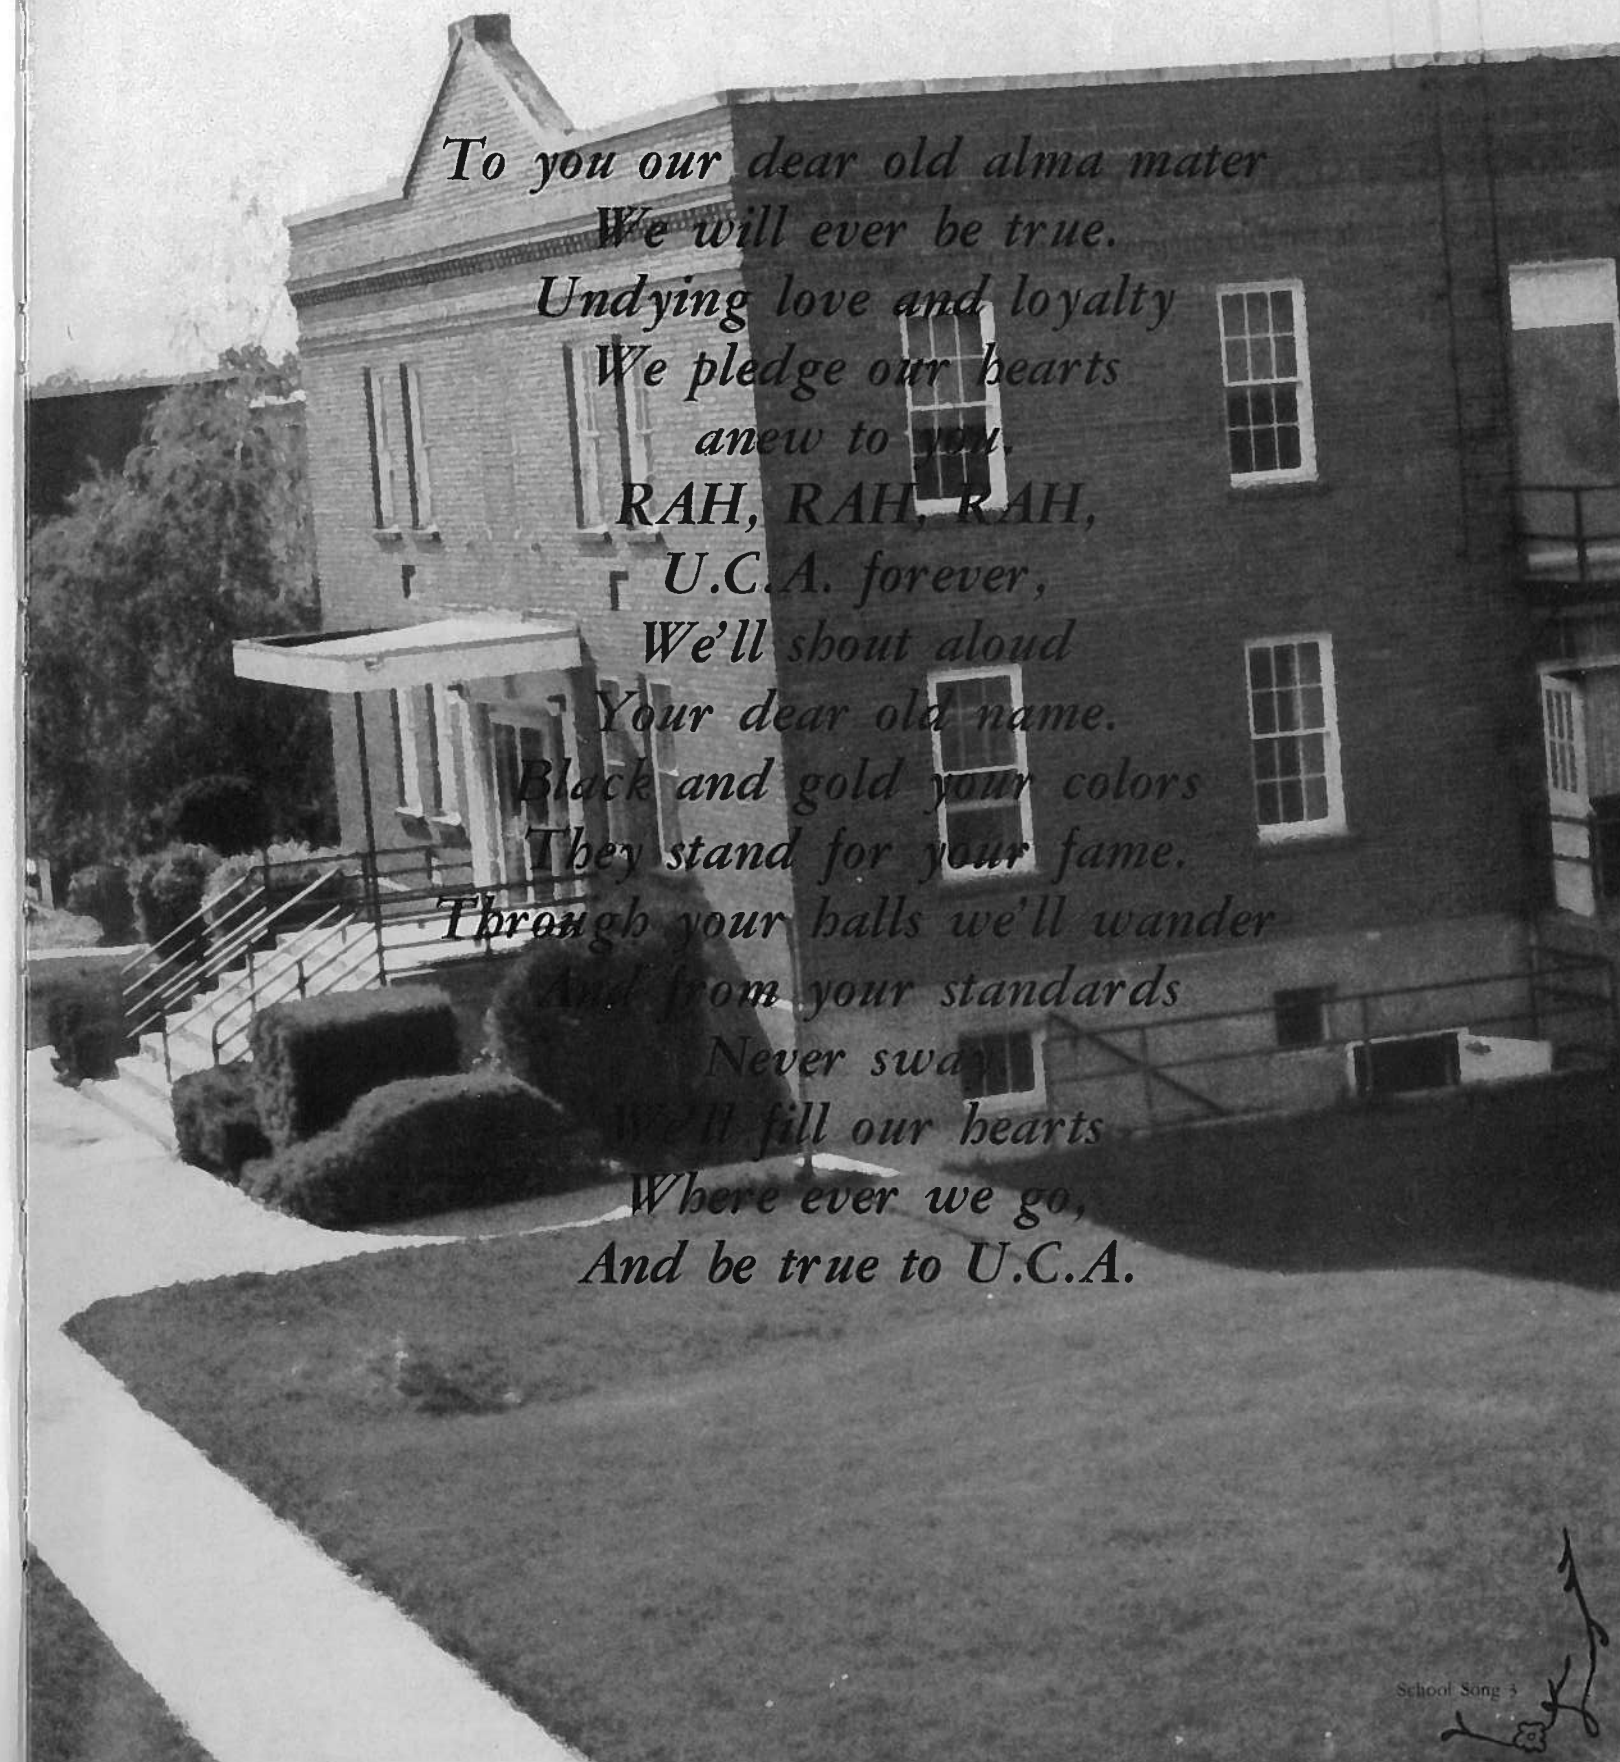 To you our dear old alma mater
We will ever be true.
Undying love and loyalty
We pledge our hearts
anew to you.
RAH, RAH, RAH,
U.C.A. forever,
We'll shout aloud
Your dear old name.
Black and gold your colors
They stand for your fame.
Through your halls we'll wander
And from your standards
Never sway.
We'll fill our hearts
Where ever we go,
And be true to U.C.A.
School Song 3